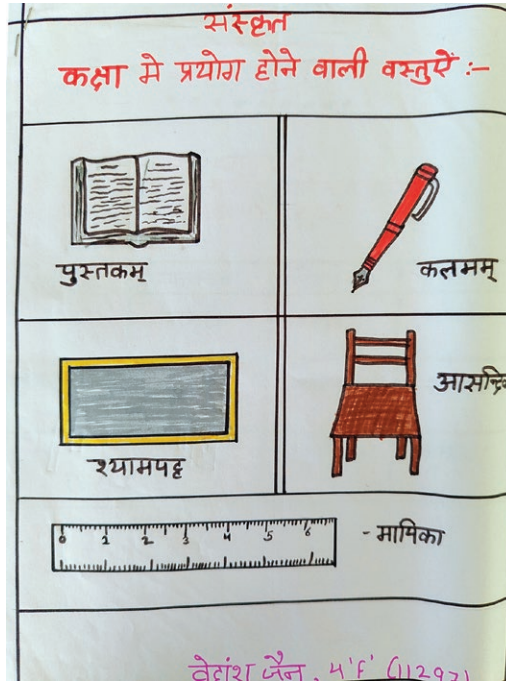 संस्कृत
कक्षा मे प्रयोग होने वाली वस्तुऐं :-
पुस्तकम्
कलमम्
श्यामपट्ट
0 1 2 3 4 5 6
- मापिका
वेदांश जैन, 4'F'